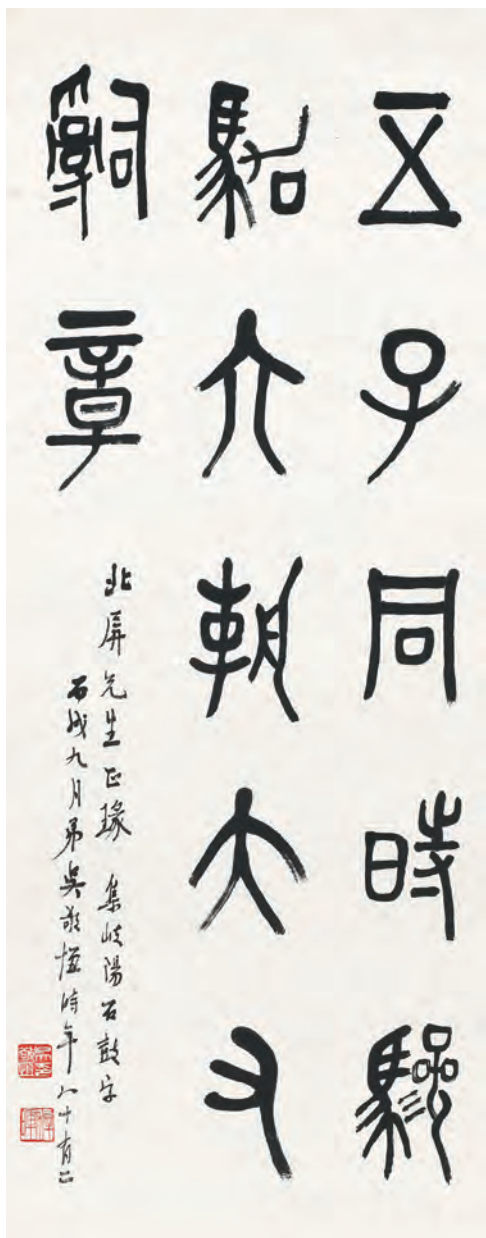 五子同時驂
駱六朝大又
辭章
北屏先生正瑑 集岐陽石鼓字
丙戌九月弟吳敬恆時年八十有二